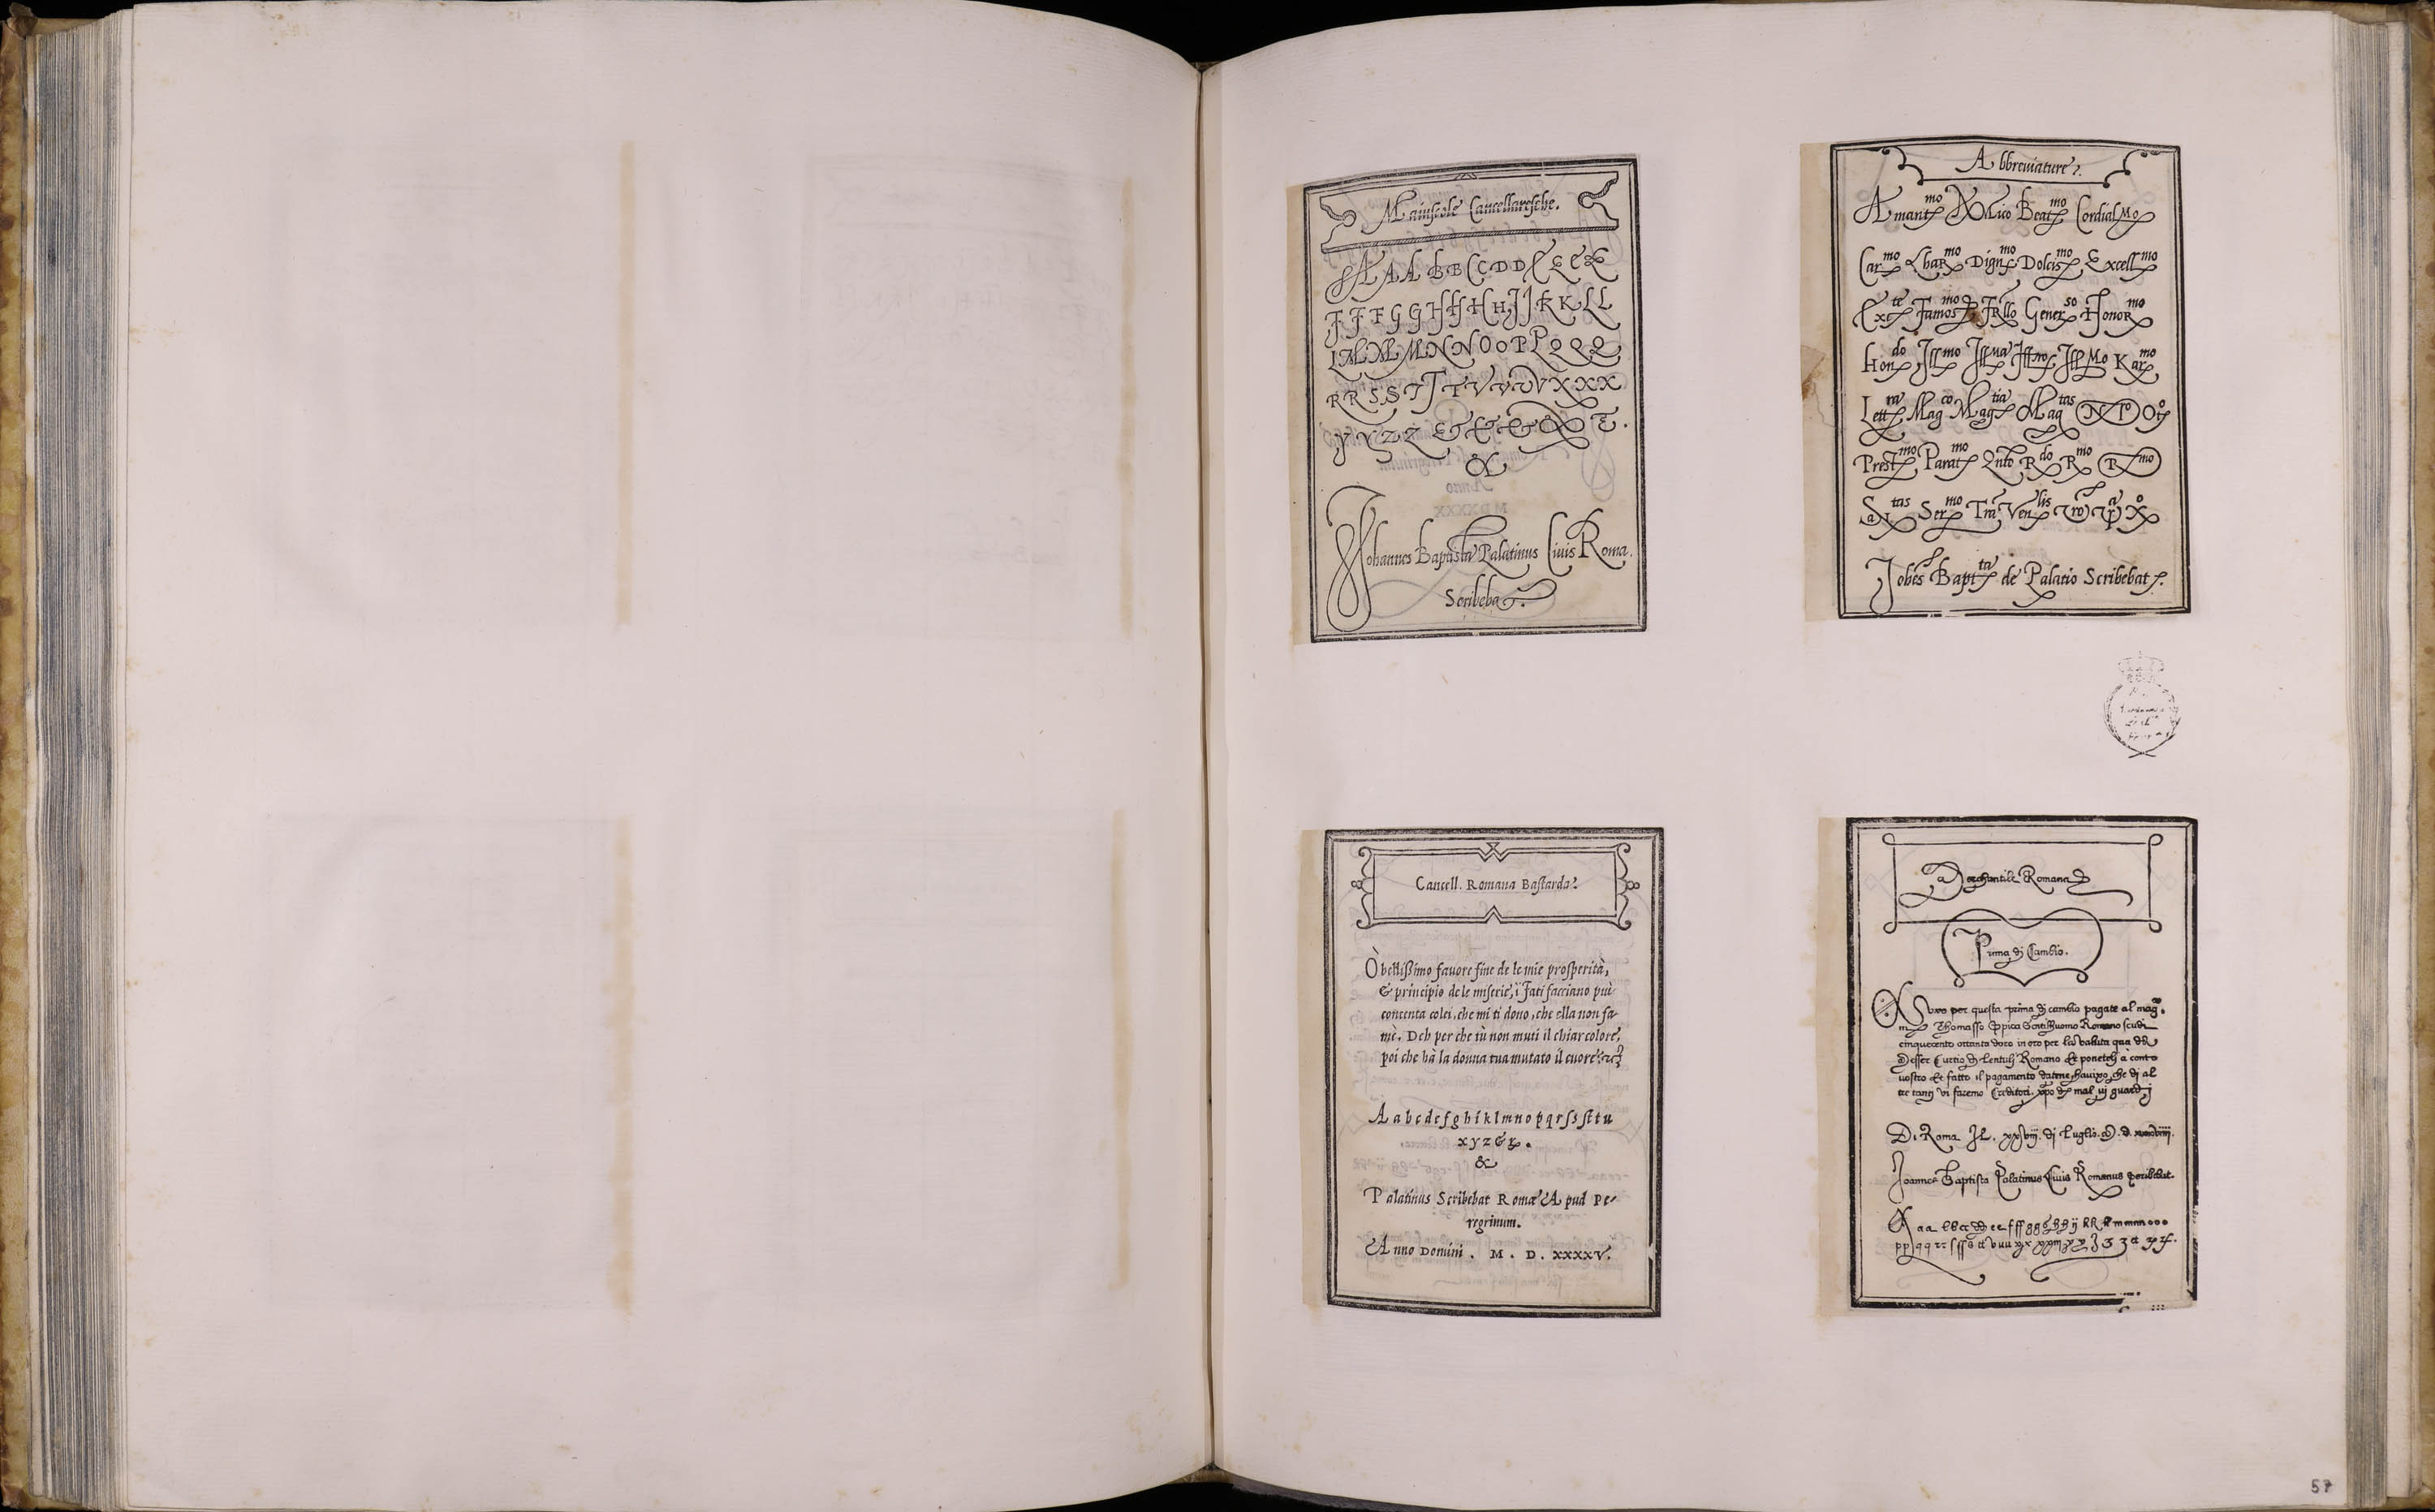 Maiuscole Cancellaresche.
A A A A B B C C D D E E E E
F F F G G H H H H I J K K L L
L M M M N N O O P P Q Q Q
R R S S T T T V V V V X X X
Y Y Z Z & & & &
&
Johannes Baptista Palatinus Ciuis Roma.
Scribeba
Abbreuiature
Amant mo Beat mo Cordial Mo
Car mo Dign mo Dolcis mo Excell mo
Famos mo Gener so Honor mo
Hon do Kar mo
Lett ra Mag co Mag tia Mag tas N P
Prest mo Parat mo R do R mo R mo
Ser mo Ven lis
Johes Bapt ta de Palatio Scribebat
Cancell. Romana Bastarda
Ò bellißimo fauore fine de le mie prosperità,
& principio de le miserie, i Fati facciano più
contenta colei, che mi ti dono, che ella non fa
mè. Deh per che tù non muti il chiar colore,
poi che hà la donna tua mutato il cuore?
A a b c d e f g h i k l m n o p q r ſ s ſt t u
x y z &
&
Palatinus Scribebat Romæ Apud Pe-
regrinum.
Anno Domini. M. D. XXXXV.
Merchantile Romana
Prima di Cambio.
per questa prima di cambio pagate al mag.co
Thomasso Gentilhuomo Romano scudi
cinquecento ottanta doro in oro per la valuta qua
Messer Curtio di Lentulj Romano et ponetelj à conto
uostro et fatto il pagamento datene, che di al
tre tanti vi faremo Creditori. mal vi guardj
Di Roma xxviij. di Luglio. M. D.
Joannes Baptista Palatinus Ciuis Romanus scribebat.
57